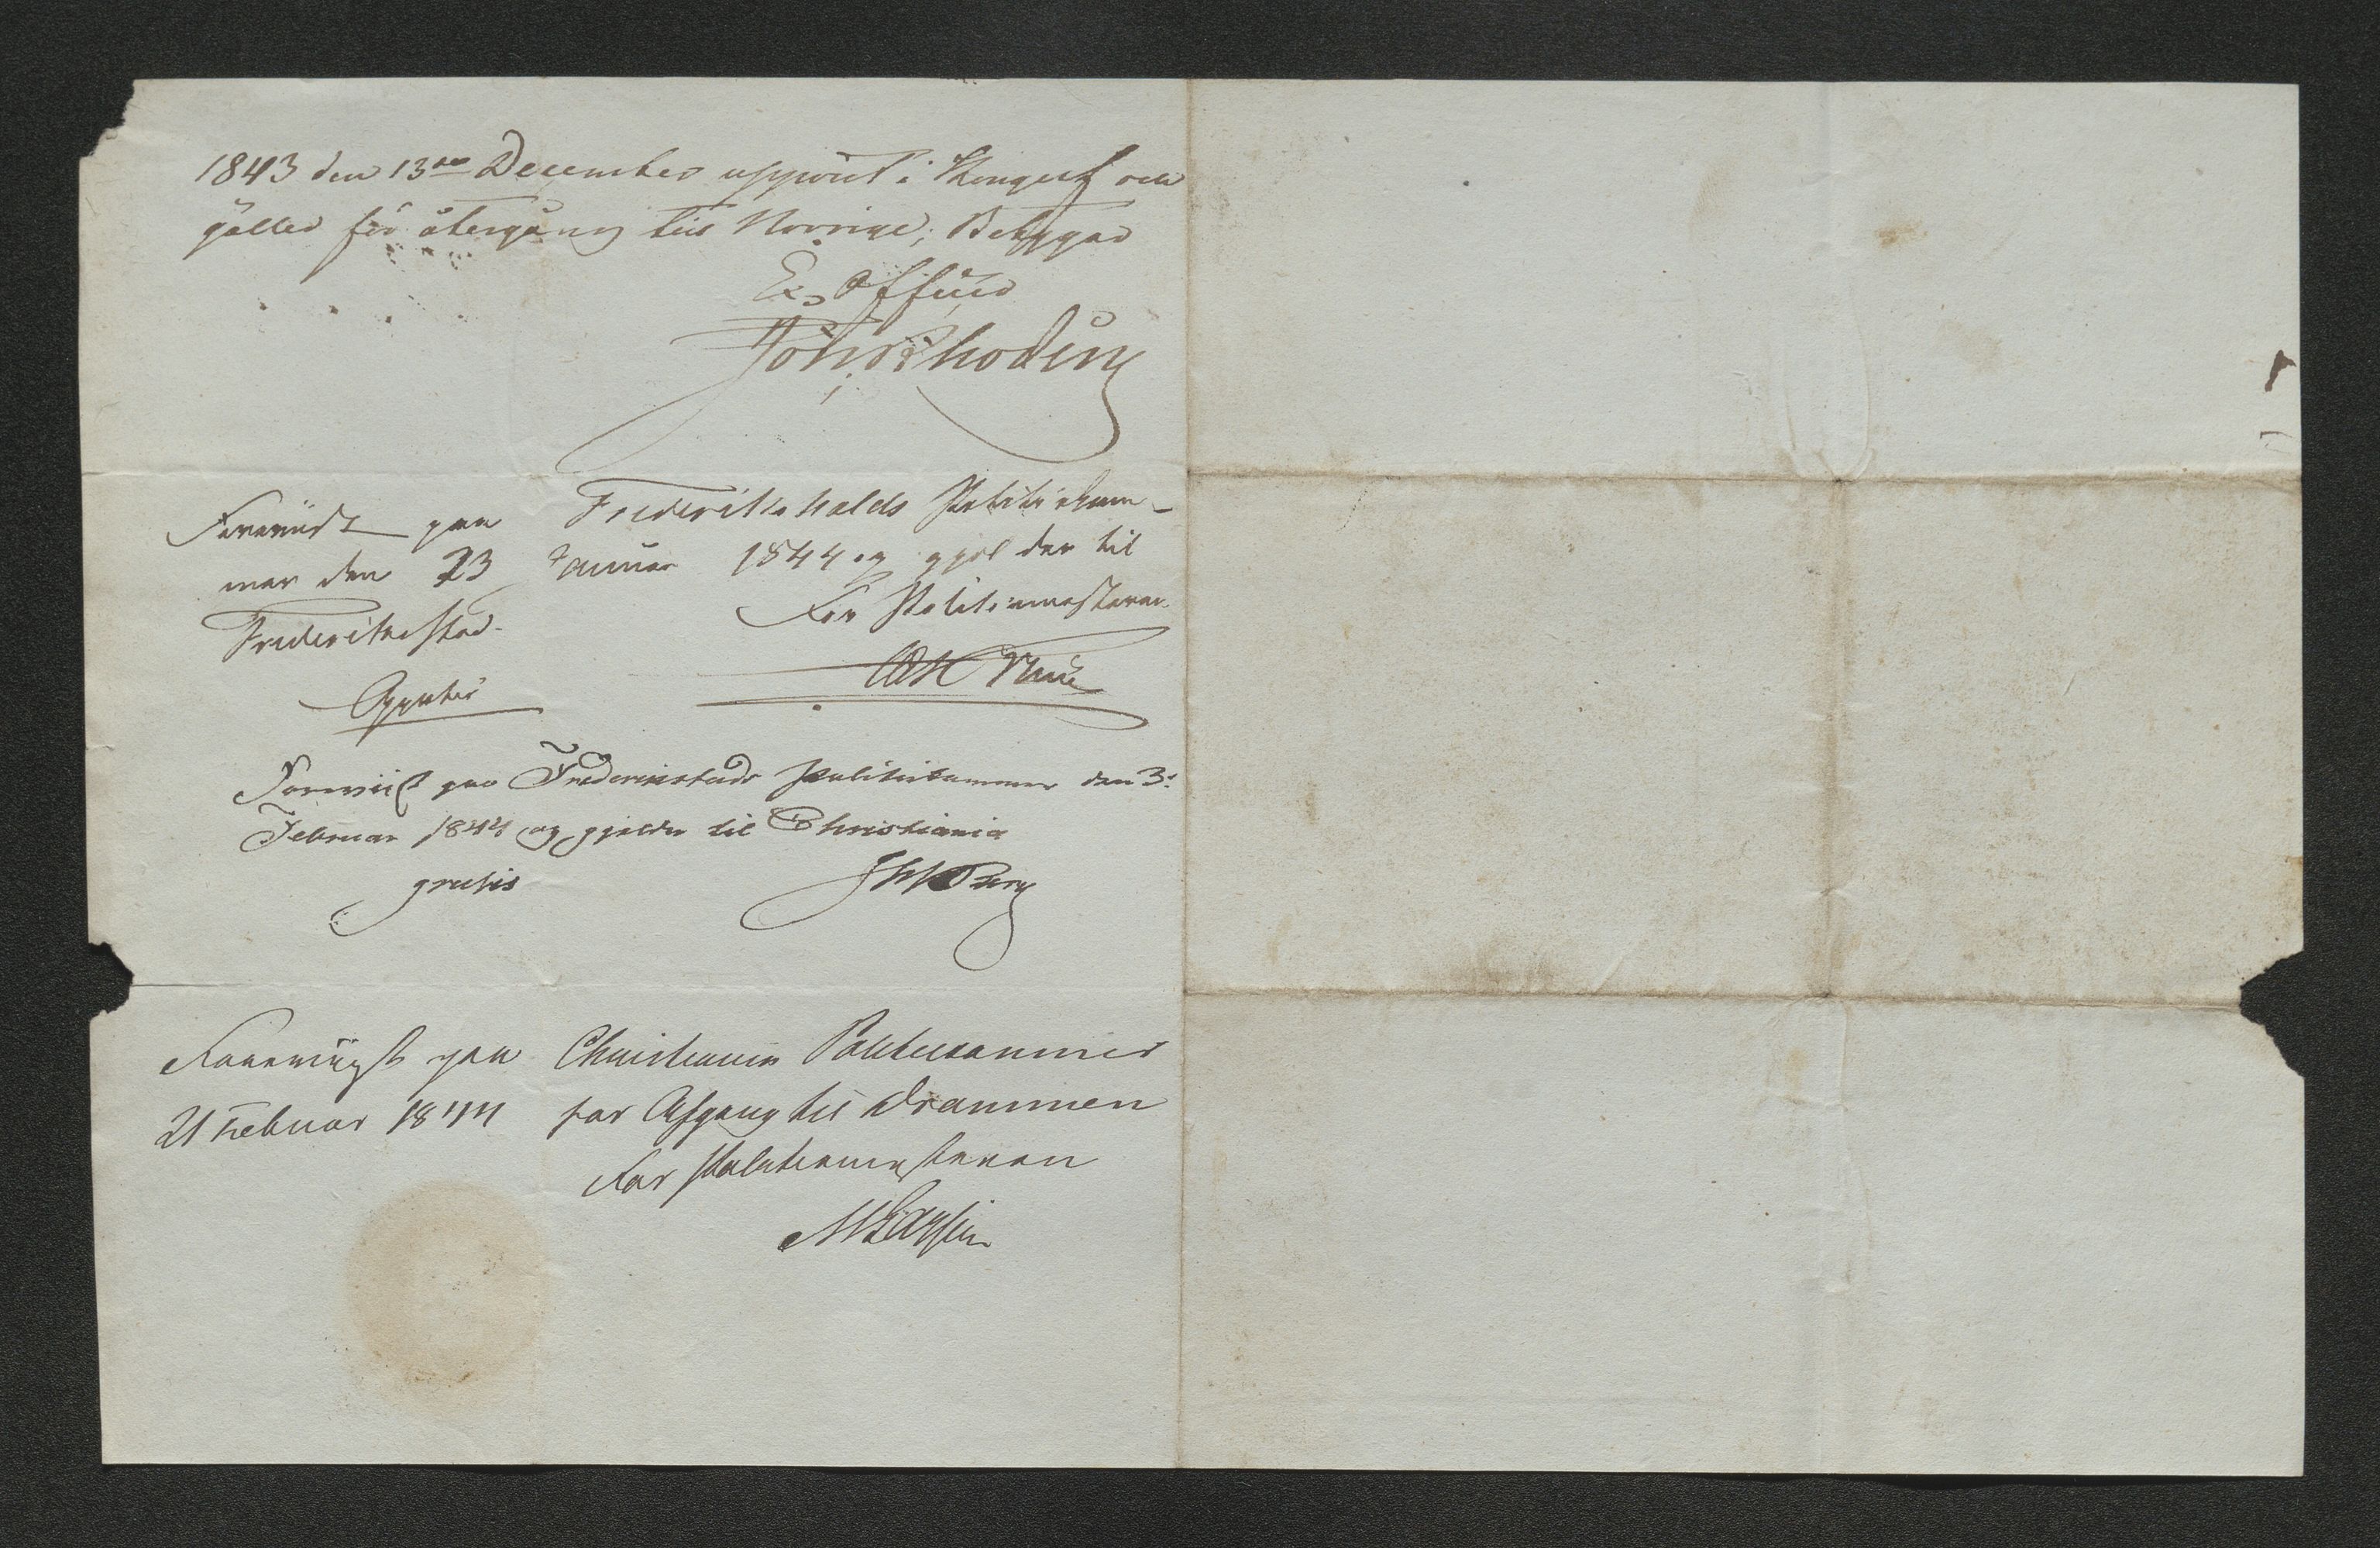 1843 den 13de December uppvist i Kongelf och
gäller för återgång till Norrige; Betygar
Ex Officio
Joh: Rhodin
Foreviist paa Frederikshalds Politiekam-
mer den 23 Januar 1844 og gjelder til
Frederikstad. For Politiemesteren
Gratis
Foreviist paa Frederikstads Politikammer den 3.
Februar 1844 og gjelder til Christiania
gratis
Foreviist paa Christiania Politiekammer
21 Februar 1844 for Afgang til Drammen
For Politiemesteren